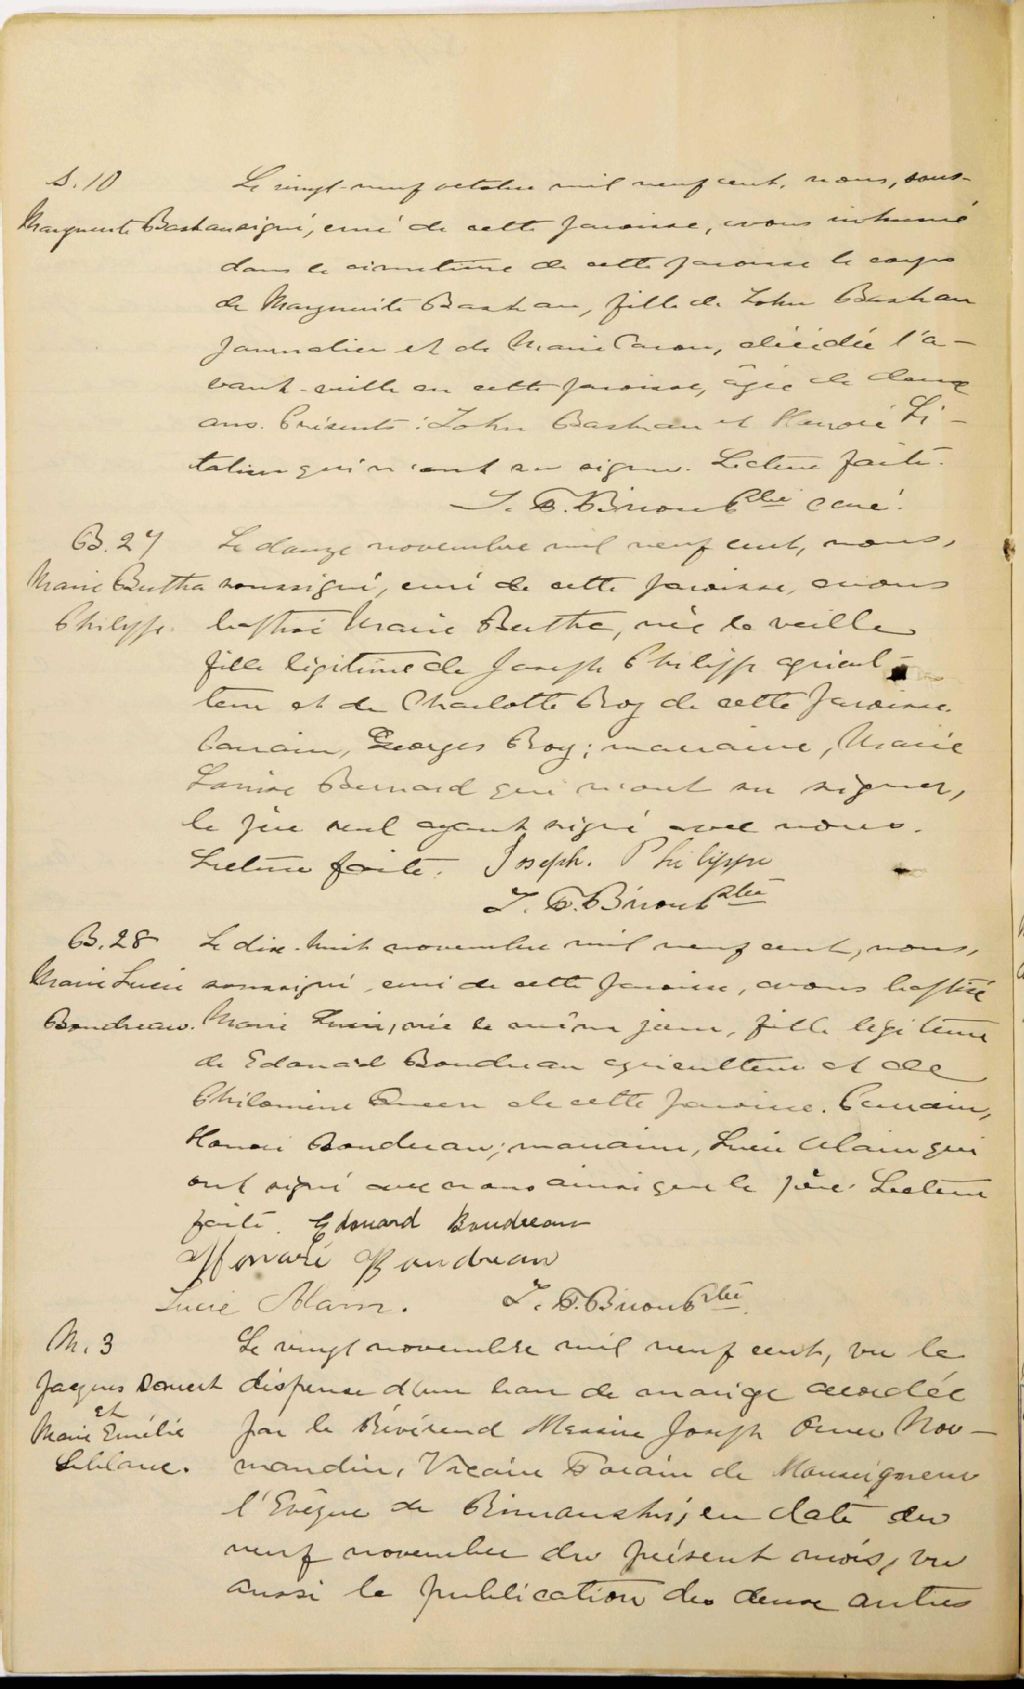 S. 10
Marguerite Bastrau
Le vingt-neuf octobre mil neuf cent, nous, sous-
signé, curé de cette paroisse, avons inhumé
dans le cimetière de cette paroisse le corps
de Marguerite Bastrau, fille de John Bastrau
journalier et de Marie Caron, décédée l'a-
vant-veille en cette paroisse, âgée de deux
ans. Présents: John Bastrau et Honoré
qui n'ont su signer. Lecture faite.
J. F. Brioux Ptre Curé.
B. 27
Marie Bertha
Philippe.
Le douze novembre mil neuf cent, nous,
soussigné, curé de cette paroisse, avons
baptisé Marie Berthe, née la veille
fille légitime de Joseph Philippe agricul-
teur et de Charlotte Roy de cette paroisse.
Parrain, Georges Roy; marraine, Marie
Louise Bernard qui n'ont su signer,
le père seul ayant signé avec nous.
Lecture faite. Joseph. Philippe
J. F. Brioux Ptre
B. 28
Marie Lucie
Boudreau.
Le dix-huit novembre mil neuf cent, nous,
soussigné, curé de cette paroisse, avons baptisé
Marie Lucie, née le même jour, fille légitime
de Edouard Boudreau agriculteur et de
Philomène de cette paroisse. Parrain,
Honoré Boudreau; marraine, Lucie Alain qui
ont signé avec nous ainsi que le père. Lecture
faite. Edouard Boudreau
Honoré Boudreau
Lucie Alain. J. F. Brioux Ptre
M. 3
Jacques
et
Marie Emélie
Leblanc.
Le vingt novembre mil neuf cent, vu la
dispense d'un ban de mariage accordée
par le Révérend Messire Joseph Omer Nor-
mandin, Vicaire Forain de Monseigneur
l'Evêque de Rimouski, en date du
neuf novembre du présent mois, vu
aussi la publication des deux autres